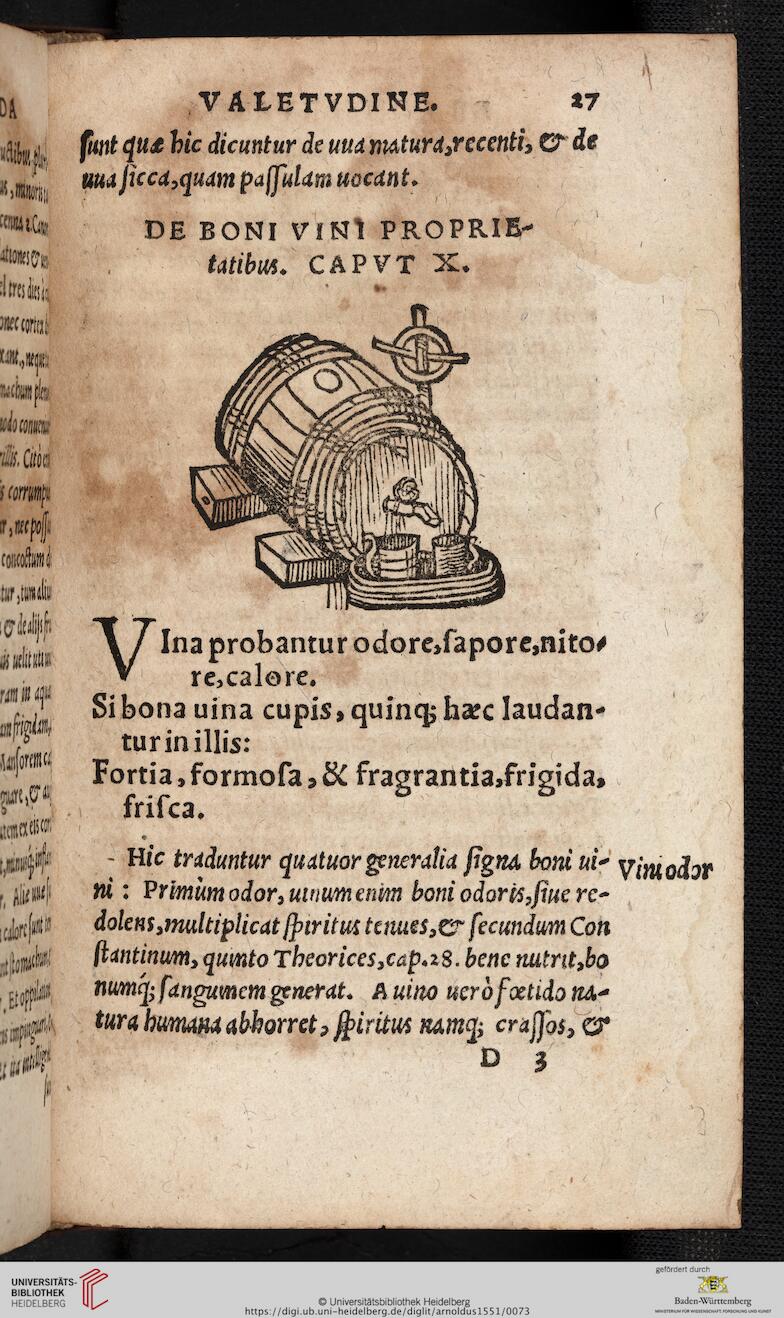 VALETVDINE. 27
ſunt quæ hic dicuntur de uua matura, recenti, & de
uua ſicca, quam paſſulam uocant.
DE BONI VINI PROPRIE-
tatibus. CAPVT X.
VIna probantur odore, ſapore, nito-
re, calore.
Si bona uina cupis, quinq; hæc laudan-
tur in illis:
Fortia, formoſa, & fragrantia, frigida,
friſca.
Hic traduntur quatuor generalia ſigna boni ui-
ni : Primùm odor, uinum enim boni odoris, ſiue re-
dolens, multiplicat ſpiritus tenues, & ſecundum Con
ſtantinum, quinto Theorices, cap. 28. bene nutrit, bo
numq́; ſanguinem generat. A uino uerò fœtido na-
tura humana abhorret, ſpiritus namq; craſſos, &
Vini odor
D 3
DA
UNIVERSITÄTS-
BIBLIOTHEK
HEIDELBERG
© Universitätsbibliothek Heidelberg
https://digi.ub.uni-heidelberg.de/diglit/arnoldus1551/0073
gefördert durch
Baden-Württemberg
MINISTERIUM FÜR WISSENSCHAFT, FORSCHUNG UND KUNST